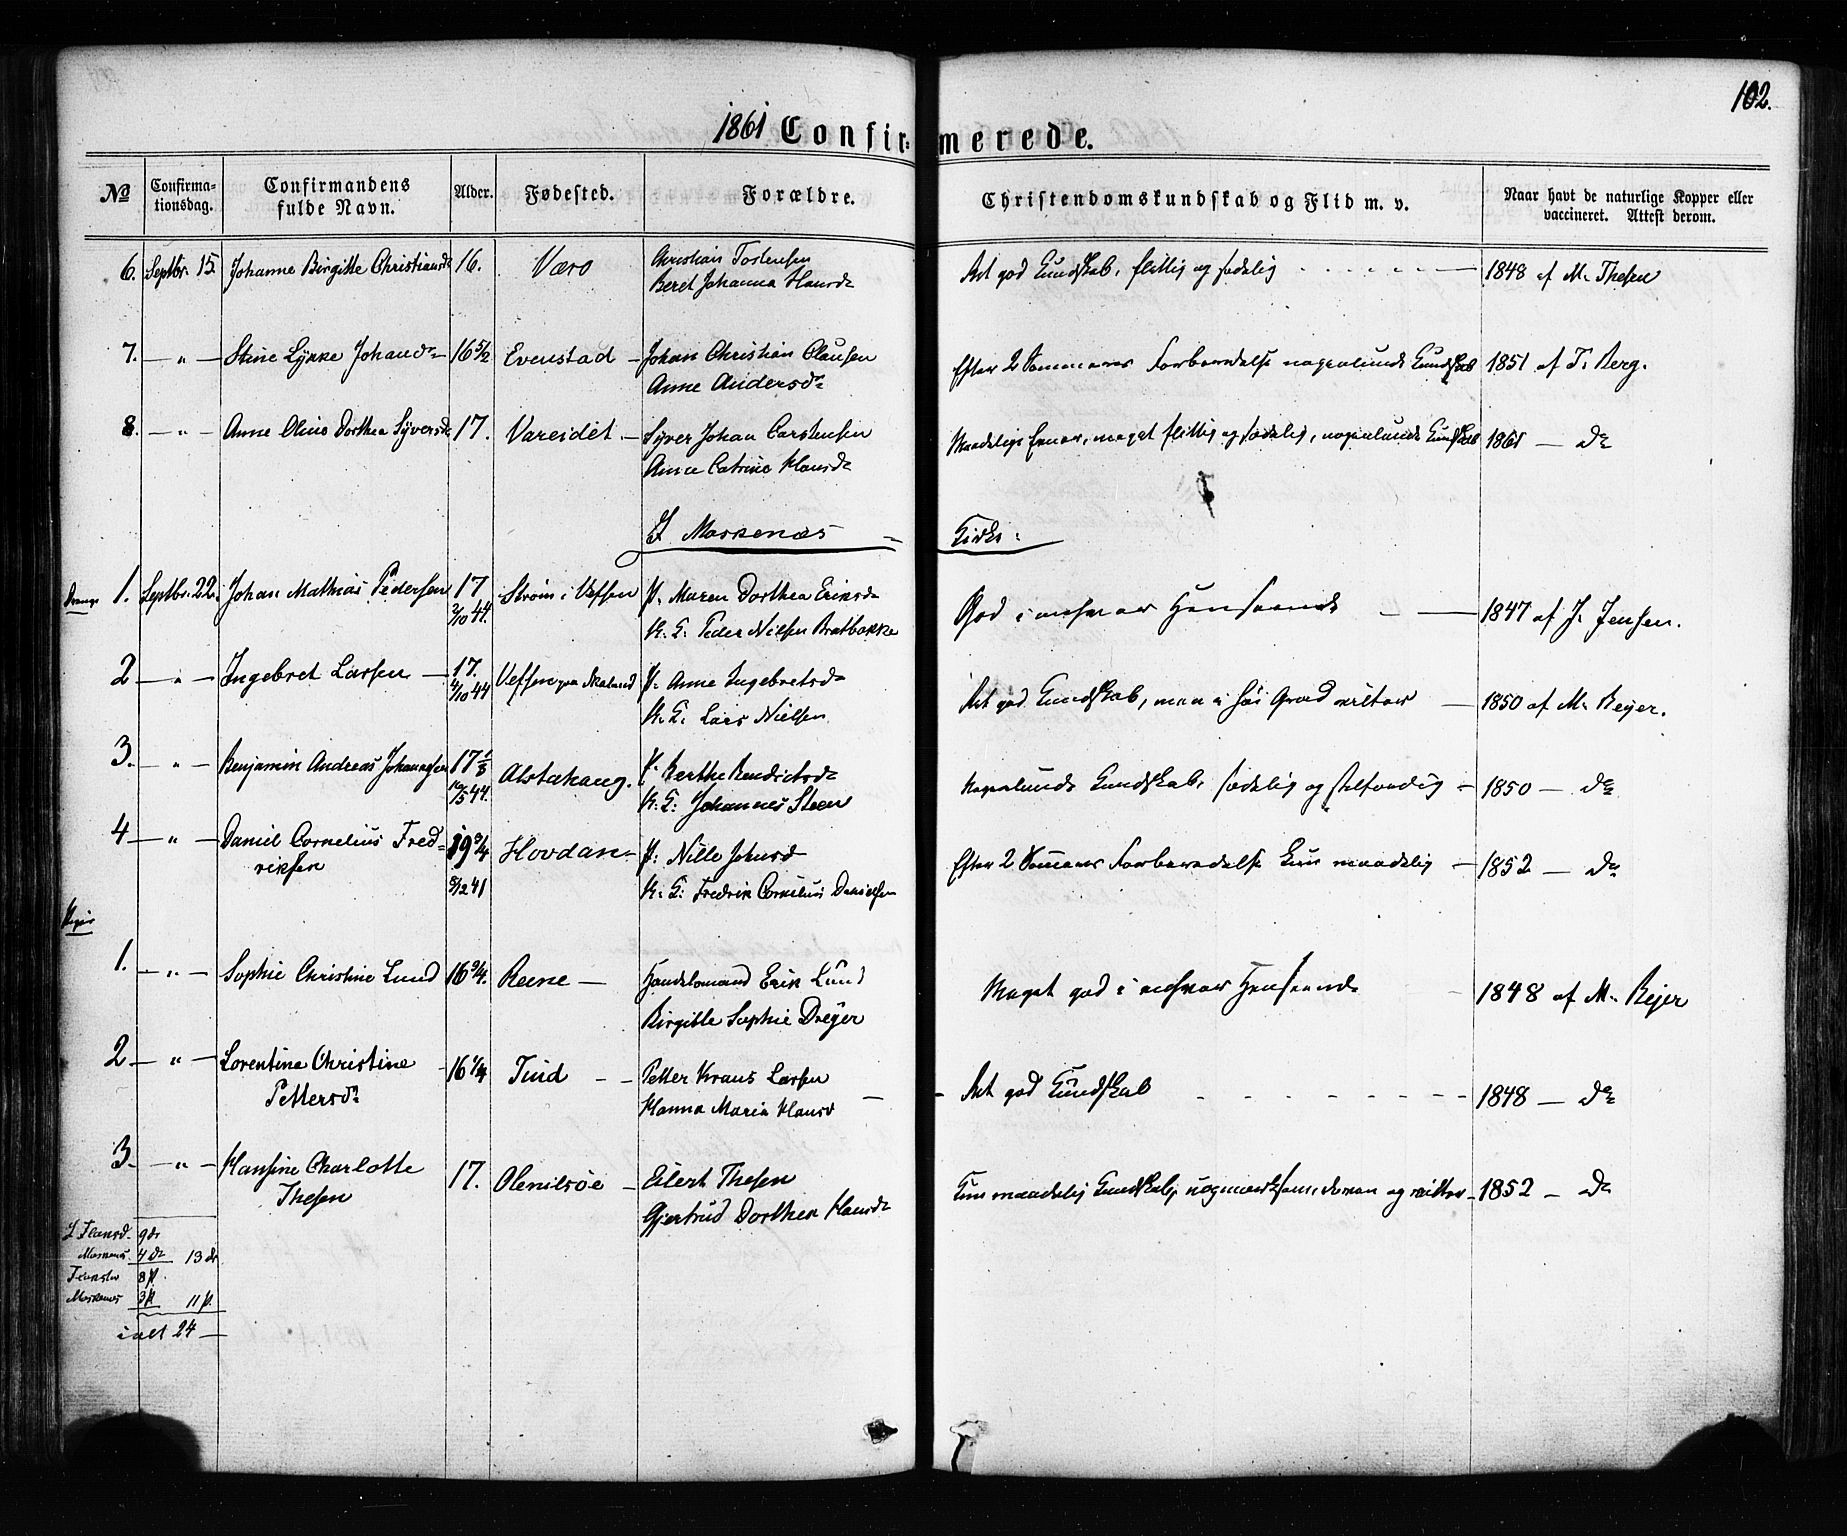 102.
1861 Confirmerede.
№ Confirma-tionsdag. Confirmandens fulde Navn. Alder. Fødested. Forældre. Christendomskundskab og Flid m. v. Naar havt de naturlige Kopper eller vaccineret. Attest derom.
6. Septbr. 15. Johanne Birgitte Christiansd 16. Værø Christian Tostensen Mt god Kundskab, flittig og sædelig 1848 af M. Thesen
Beret Johanna Hansd
7. — " — Stine Lykke Johansd 16 5/12 Evenstad — Johan Christian Clausen Efter 2 Sommeres Forberedelse nogenlunde Kundskab 1851 af T. Berg.
Anne Andersd
8. — " — Anne Oline Dorthea Syversd 17. Vareidet — Syver Johan Carstensen Maadelige Evner, meget flittig og sædelig, nogenlunde Kundskab 1861 — do
Anne Catrine Hansd
I Moskenæs Kirke:
Drenge 1. Septbr. 22. Johan Mathias Pedersen 17 Strøm i Vefsen P. Maren Dorthea Eriksd God i enhver Henseende — 1847 af J. Jensen.
2/10 44. U. E: Peder Nielsen Bratbakke
2 — " — Ingebret Larsen — 17. Vefsen paa P. Anne Ingebretsd Mt god Kundskab, men i høi Grad — 1850 af M. Bejer.
4/10 44 U. E: Lars Nielsen
3. — " — Benjamin Andreas Johannesen 17 1/3 Alstahaug. P. Berthe Bendictsd Nogenlunde Kundskab, sædelig og stilfærdig — 1850 — do
10/5 44. U. E: Johannes Steen
4 — " — Daniel Cornelius Fred- 19 3/4 Hovdan — P: Nille Johnsd Efter 2 Sommeres Forberedelse kun maadelig — 1852 — do
riksen 8/12 41 U. E: Fredrik Cornelius Danielsen
Piger
1. — " — Sophie Christine Lund 16 3/4. Reene — Handelsmand Erik Lund Meget god i enhver Henseende 1848 af M. Bejer
Birgitte Sophie Dreyer
2 — " — Lorentine Christine 16 1/4 Tind — — Petter Kraus Larsen — Mt god Kundskab 1848 — do
Pettersd Hanna Maria Hansd
3. — " — Hansine Charlotte 17. Olenilsøe — Eilert Thesen Kun maadelig Kundskab, 1852 — do
Thesen Gjertrud Dorthea Hansd
I Flansd. 9 dr
Moskenæs 4 dr 13 dr
8 p.
Moskenæs 3 p 11 p.
ialt 24 —